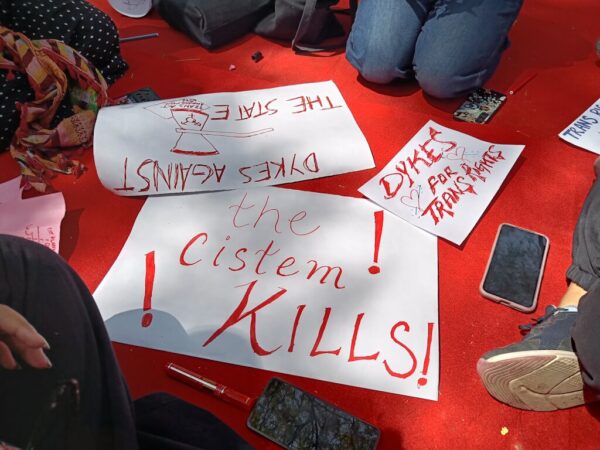 DYKES AGAINST
THE STATE
DYKES
FOR
TRANS RIGHTS
TRANS
the
Cistem!
! KILLS!